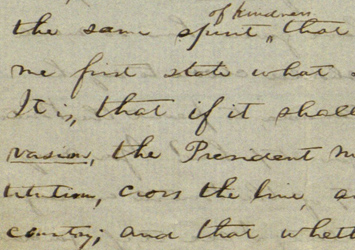 of kindness
the same spirit, that
me first state what
It is, that if it shall
vasion, the President
titution, cross the line,
country; and that whet